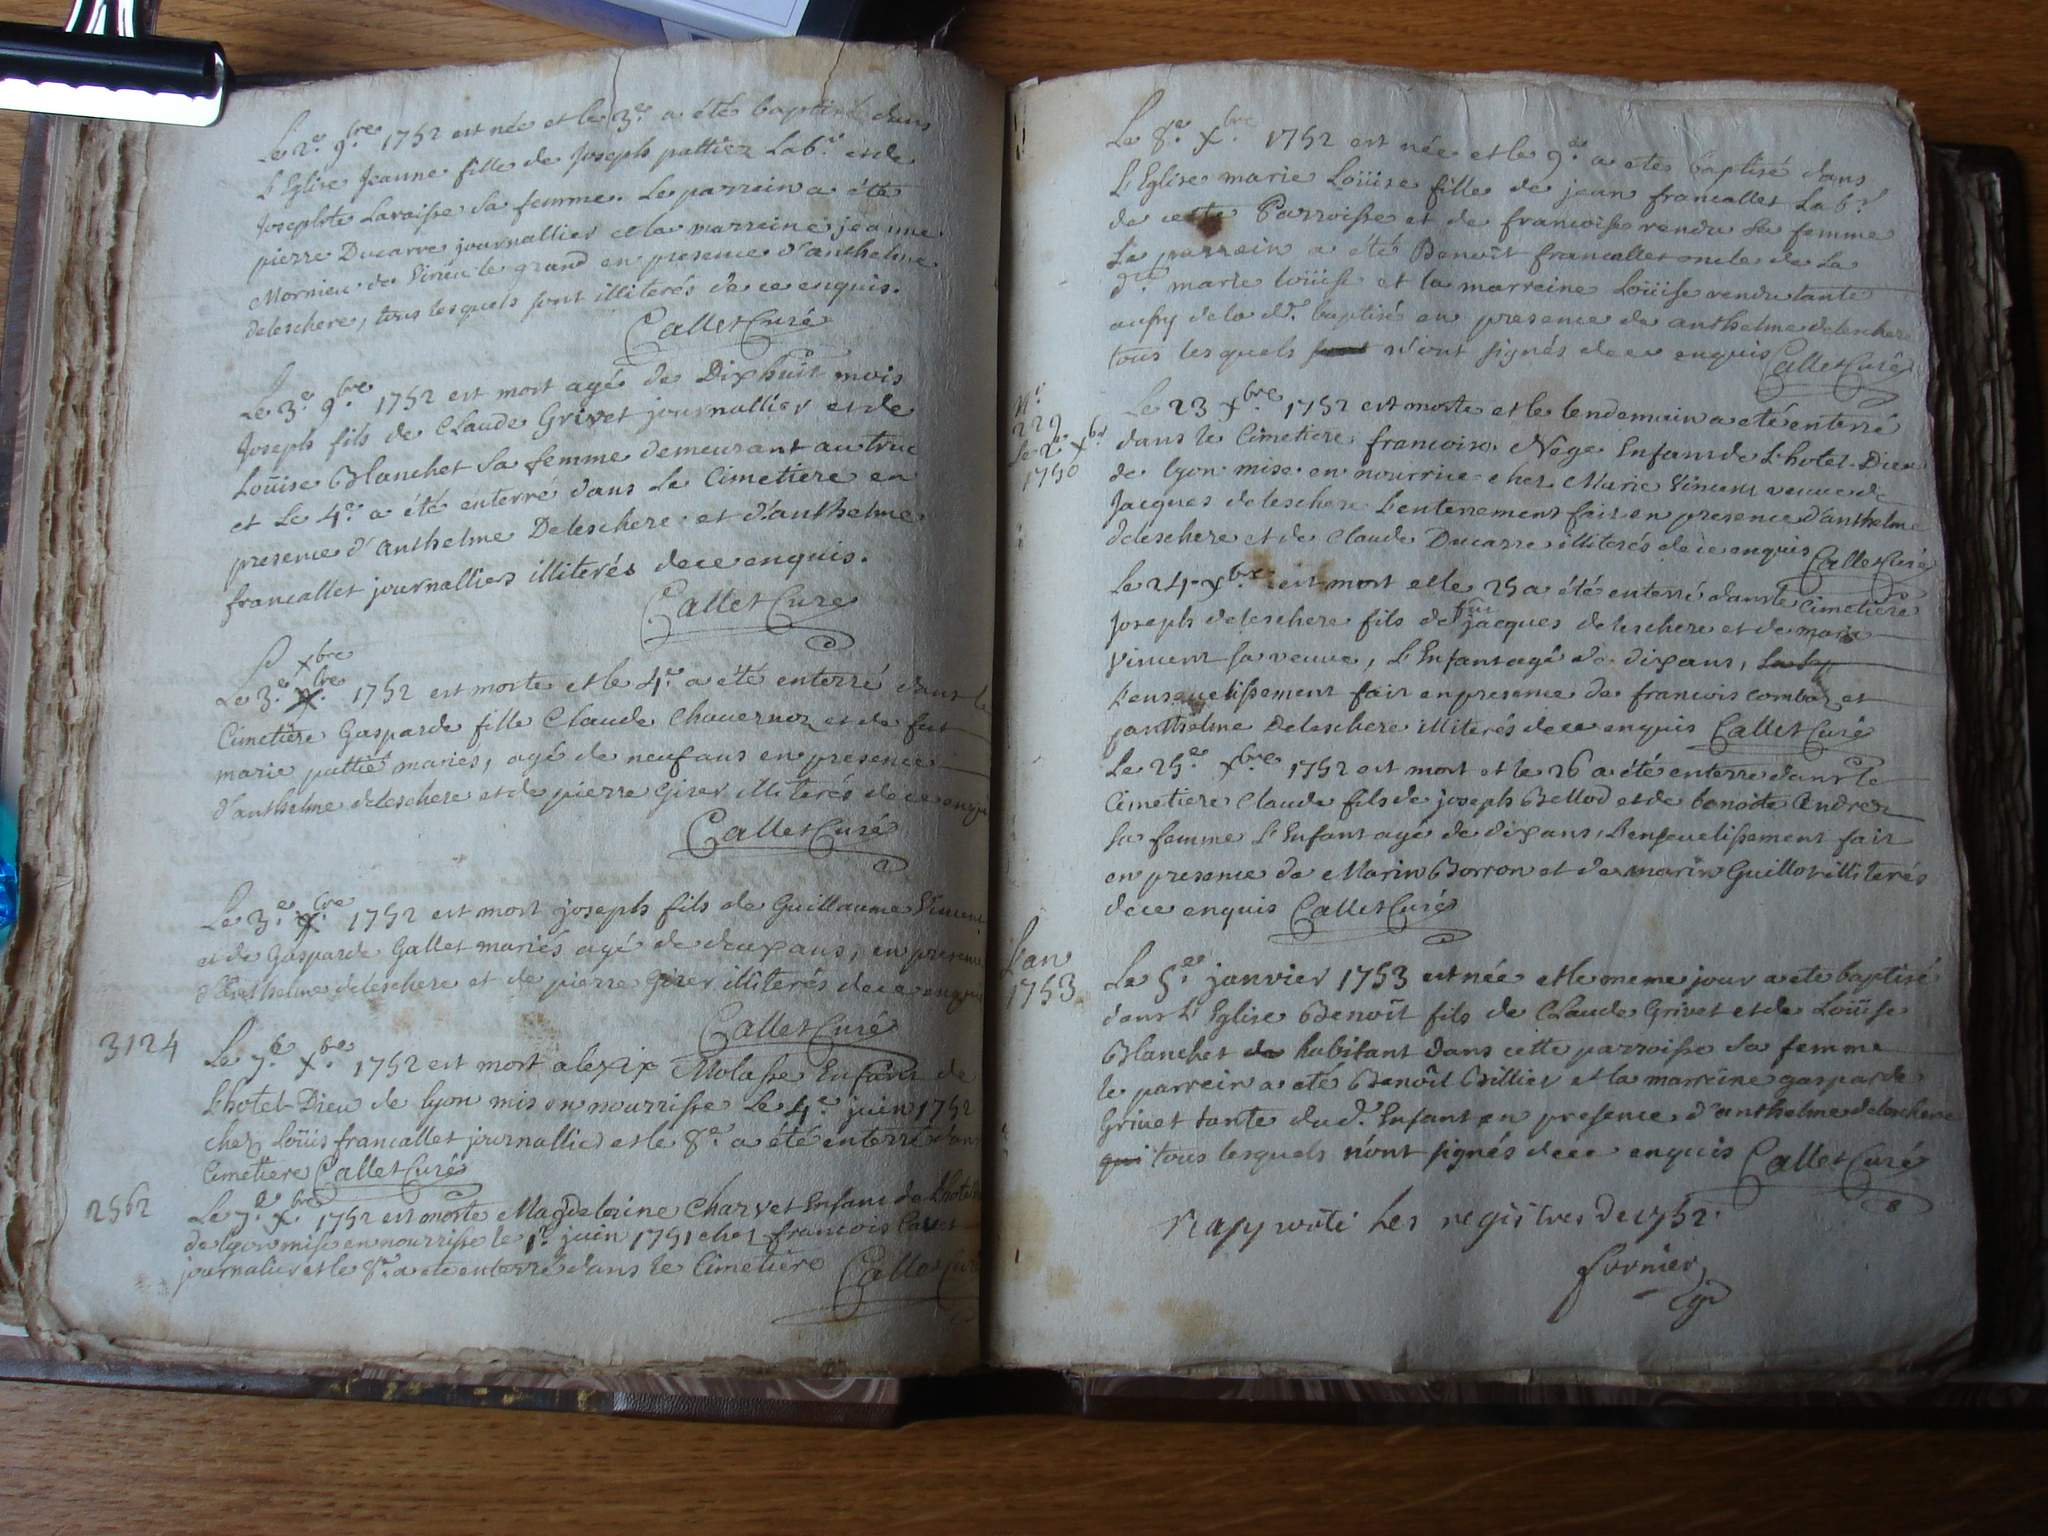 Le 2.e 9.bre 1752 est née et le 3.e a été baptisé dans
L'Eglise Jeanne fille de Joseph pattier Lab.r et de
Josephte Lavaisse sa femme. Le parrein a été
pierre Ducarre journallier et la marreine jeanne
Mornieu de Virieu le grand en presence d'anthelme
deleschere, tous lesquels sont illiterés de ce enquis.
Callet Curé
Le 3.e 9.bre 1752 est mort agé de Dixhuit mois
Joseph fils de Claude Grivet journallier et de
Loüise Blanchet sa femme demeurant au truc
et Le 4.e a été enterré dans Le Cimetiere en
presence d'anthelme Deleschere et d'anthelme
francallet journalliers illiterés de ce enquis.
Callet Curé
xbre
Le 3.e 9.bre 1752 est morte et le 4.e a été enterré dans le
Cimetière Gasparde fille Claude Chavernoz et de fut
marie pattié mariés, agé de neuf ans en presence
d'anthelme deleschere et de pierre Girer illiterés de ce enquis
Callet Curé
Le 3.e xbre 1752 est mort joseph fils de Guillaume Vincent
et de Gasparde Gallet mariés agé de deux ans, en presence
d'Anthelme deleschere et de pierre Girer illiterés de ce enquis
Callet Curé
3124
Le 7.e xbre 1752 est mort alexix Molasse Enfant de
L'hotel-Dieu de lyon mis en nourrisse Le 4.e juin 1752
chez Loüis francallet journallier et le 8.e a été enterré dans
Cimetiere Callet Curé
2562
Le 7.e xbre 1752 est morte Magdeleine Charvet Enfant de L'hotel
de lyon mise en nourrisse le 1.r juin 1751 chez francois Callet
journalier et le 8.e a eté enterré dans le Cimetière Callet Curé
Le 8.e xbre 1752 est née et le 9.e a eté baptisé dans
L'Eglise marie Loüise fille de jean francallet Lab.r
de cette Parroisse et de francoise rendu sa femme
Le parrein a été Benoît francallet oncle de La
d.te marie loüise et la marreine Loüise rendu tante
aussy de la d.e baptisé en presence de anthelme deleschere
tous lesquels sont n'ont signés de ce enquis Callet Curé
N.o
229
Le 2.e xbr
1750
Le 23 xbre 1752 est morte et le lendemain a eté enterré
dans le Cimetiere francoise Nege Enfant de L'hotel-Dieu
de lyon mise en nourrice chez Marie Vincent veuve de
Jacques deleschere L'enterrement fait en presence d'anthelme
deleschere et de Claude Ducarre illiterés de ce enquis Callet Curé
Le 24 xbre est mort et le 25 a été enterré dans le Cimetière
Joseph deleschere fils de feu jacques deleschere et de marie
Vincent sa veuve, L'Enfant agé de dix ans,
L'ensevelissement fait en presence de francois combaz et
janthelme Deleschere illiterés de ce enquis Callet Curé
Le 25.e xbre 1752 est mort et le 26 a été enterre dans le
Cimetiere Claude fils de joseph Bellod et de benoite Andrez
sa femme L'Enfant agé de dix ans, L'ensevelissement fait
en presence de Marin Borron et de marin Guillot illiterés
de ce enquis Callet Curé
L'an
1753
Le 5.e janvier 1753 est née et le meme jour a eté baptisé
dans L'Eglise Benoît fils de Claude Grivet et de Loüise
Blanchet de habitant dans cette parroisse sa femme
le parrein a eté Benoît Billiet et la marreine gasparde
Grivet tante dud. Enfant en presence d'anthelme deleschere
qui tous lesquels n'ont signés de ce enquis Callet Curé
les registres de 1752
fornier